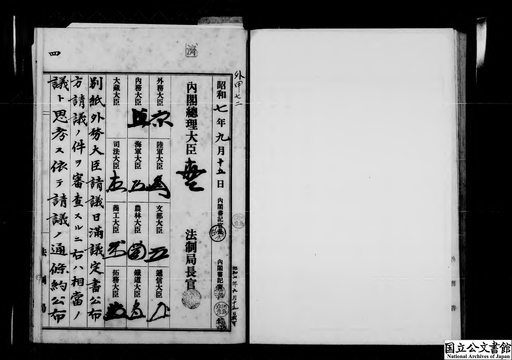 外甲七二
昭和七年九月十五日
内閣書記官長
内閣書記官
内閣總理大臣
法制局長官
外務大臣
陸軍大臣
文部大臣
遞信大臣
内務大臣
海軍大臣
農林大臣
鐵道大臣
大蔵大臣
司法大臣
商工大臣
拓務大臣
別紙外務大臣請議日滿議定書公布
方請議ノ件ヲ審査スルニ右ハ相當ノ
議ト思考ス依テ請議ノ通條約公布
四
国立公文書館
National Archives of Japan